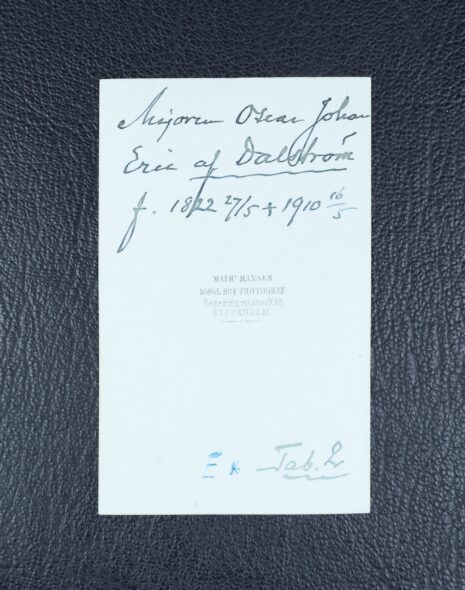 Majoren Oscar Johan
Eric af Dalström
f. 1822 27/5 + 1910 16/5
MATHS HANSEN
KONGL. HOF FOTOGRAF
Regeringsgatan N:18,
STOCKHOLM
E * Tab. 2